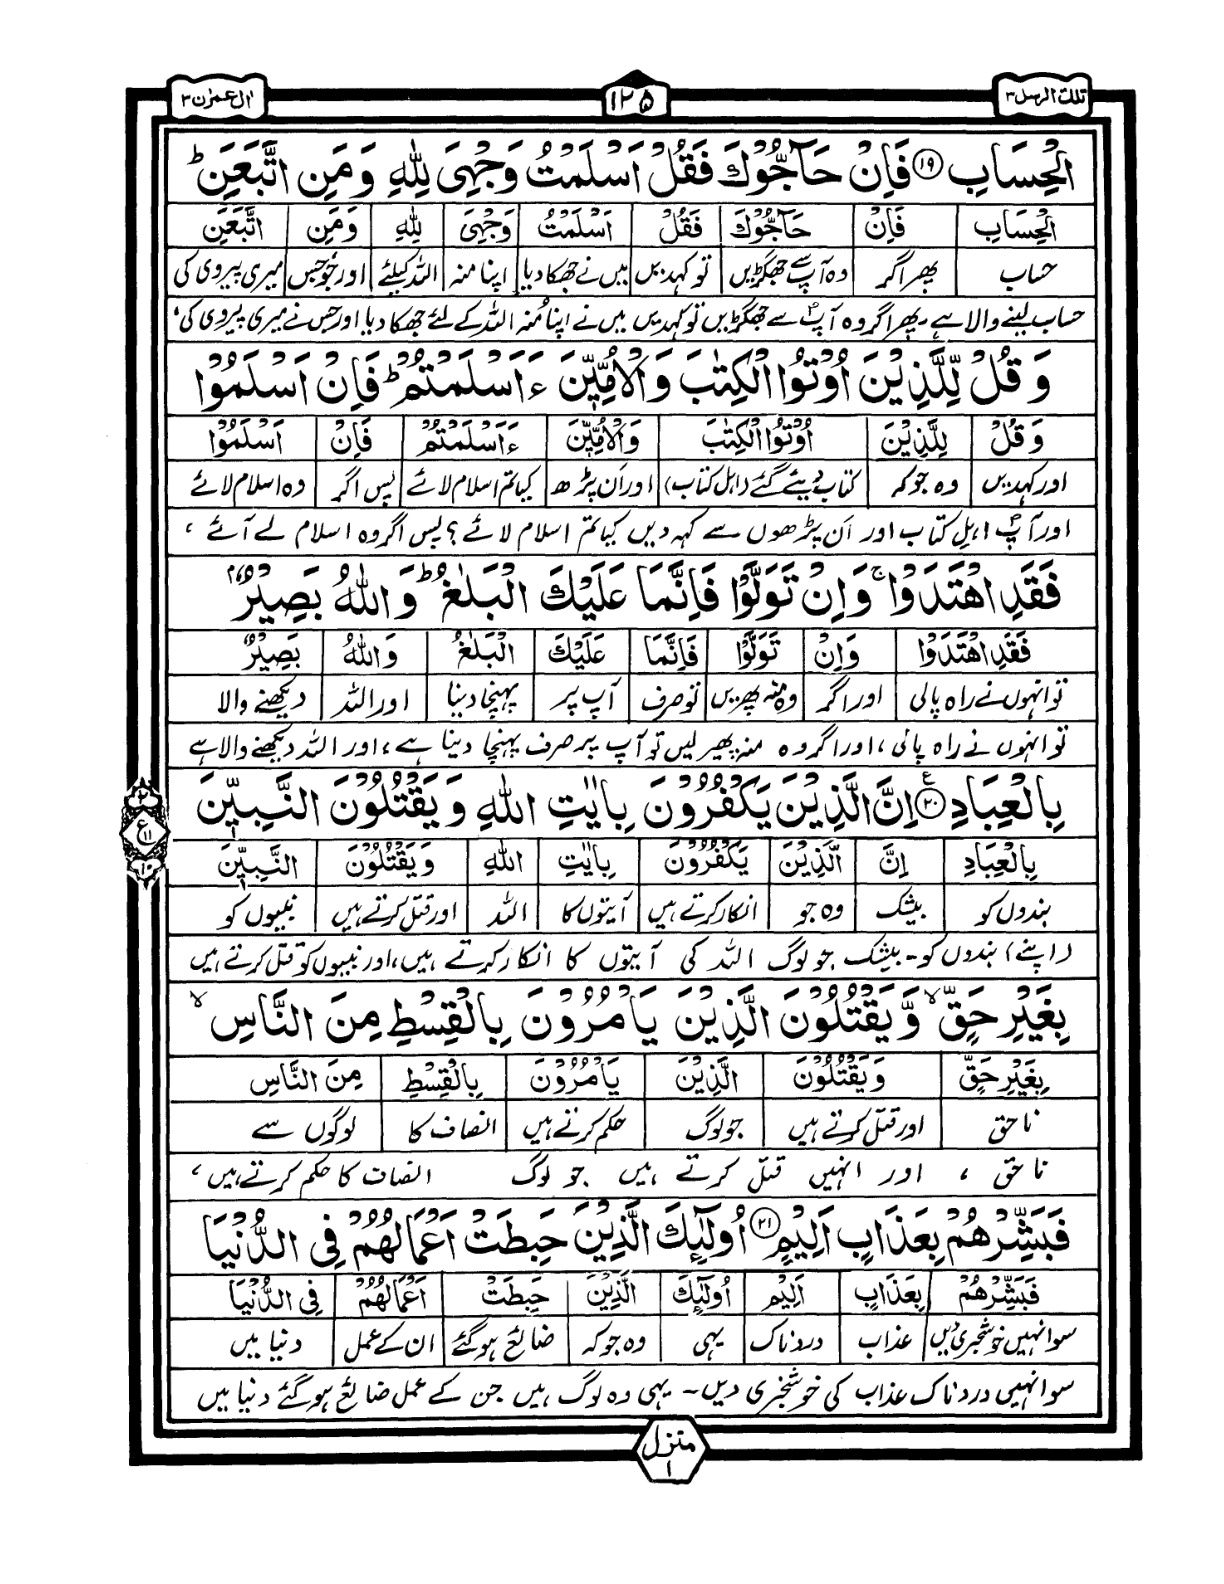 تلك الرسل ٣
١٢٥
اٰل عمرٰن ٣
الْحِسَابِ ۝١٩ فَاِنْ حَآجُّوْكَ فَقُلْ اَسْلَمْتُ وَجْهِيَ لِلّٰهِ وَمَنِ اتَّبَعَنِ ؕ
الْحِسَابِ فَاِنْ حَآجُّوْكَ فَقُلْ اَسْلَمْتُ وَجْهِيَ لِلّٰهِ وَمَنِ اتَّبَعَنِ
حساب پھر اگر وہ آپ سے جھگڑیں تو کہدیں میں نے جھکا دیا اپنا منہ اللہ کیلئے اور جو جس میری پیروی کی
حساب لینے والا ہے، پھر اگر وہ آپؐ سے جھگڑیں تو کہدیں میں نے اپنا مُنہ اللہ کے لئے جھکا دیا اور جس نے میری پیروی کی،
وَقُلْ لِّلَّذِيْنَ اُوْتُوا الْكِتٰبَ وَالْاُمِّيّٖنَ ءَاَسْلَمْتُمْ ؕ فَاِنْ اَسْلَمُوْا
وَقُلْ لِلَّذِيْنَ اُوْتُوا الْكِتٰبَ وَالْاُمِّيّٖنَ ءَاَسْلَمْتُمْ فَاِنْ اَسْلَمُوْا
اور کہدیں وہ جو کہ کتاب دیئے گئے (اہل کتاب) اور اَن پڑھ کیا تم اسلام لائے پس اگر وہ اسلام لائے
اور آپؐ اہلِ کتاب اور اَن پڑھوں سے کہہ دیں کیا تم اسلام لائے؟ پس اگر وہ اسلام لے آئے،
فَقَدِ اهْتَدَوْا ۚ وَاِنْ تَوَلَّوْا فَاِنَّمَا عَلَيْكَ الْبَلٰغُ ؕ وَاللّٰهُ بَصِيْرٌۢ
فَقَدِ اهْتَدَوْا وَاِنْ تَوَلَّوْا فَاِنَّمَا عَلَيْكَ الْبَلٰغُ وَاللّٰهُ بَصِيْرٌۢ
تو انہوں نے راہ پالی اور اگر وہ منہ پھیریں تو صرف آپ پر پہنچا دینا اور اللہ دیکھنے والا
تو انہوں نے راہ پالی، اور اگر وہ منہ پھیر لیں تو آپ پر صرف پہنچا دینا ہے، اور اللہ دیکھنے والا ہے
بِالْعِبَادِ ۝٢٠ ع اِنَّ الَّذِيْنَ يَكْفُرُوْنَ بِاٰيٰتِ اللّٰهِ وَيَقْتُلُوْنَ النَّبِيّٖنَ
٢
ع ١١
١٠
بِالْعِبَادِ اِنَّ الَّذِيْنَ يَكْفُرُوْنَ بِاٰيٰتِ اللّٰهِ وَيَقْتُلُوْنَ النَّبِيّٖنَ
بندوں کو بیشک وہ جو انکار کرتے ہیں آیتوں کا اللہ اور قتل کرتے ہیں نبیوں کو
(اپنے) بندوں کو۔ بیشک جو لوگ اللہ کی آیتوں کا انکار کرتے ہیں، اور نبیوں کو قتل کرتے ہیں
بِغَيْرِ حَقٍّ ۙ وَّيَقْتُلُوْنَ الَّذِيْنَ يَاْمُرُوْنَ بِالْقِسْطِ مِنَ النَّاسِ ۙ
بِغَيْرِ حَقٍّ وَيَقْتُلُوْنَ الَّذِيْنَ يَاْمُرُوْنَ بِالْقِسْطِ مِنَ النَّاسِ
ناحق اور قتل کرتے ہیں جو لوگ حکم کرتے ہیں انصاف کا لوگوں سے
ناحق ، اور انہیں قتل کرتے ہیں جو لوگ انصاف کا حکم کرتے ہیں،
فَبَشِّرْهُمْ بِعَذَابٍ اَلِيْمٍ ۝٢١ اُولٰٓئِكَ الَّذِيْنَ حَبِطَتْ اَعْمَالُهُمْ فِى الدُّنْيَا
فَبَشِّرْهُمْ بِعَذَابٍ اَلِيْمٍ اُولٰٓئِكَ الَّذِيْنَ حَبِطَتْ اَعْمَالُهُمْ فِى الدُّنْيَا
سو انہیں خوشخبری دیں عذاب دردناک یہی وہ جو کہ ضائع ہو گئے ان کے عمل دنیا میں
سو انہیں دردناک عذاب کی خوشخبری دیں۔ یہی وہ لوگ ہیں جن کے عمل ضائع ہو گئے دنیا میں
منزل
١